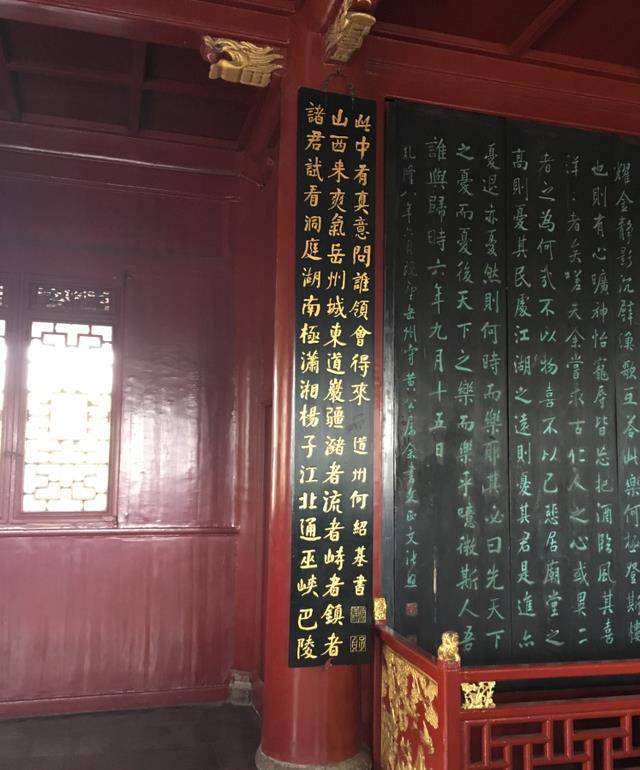 諸君試看洞庭湖南極瀟湘楊子江北通巫峽巴陵
山西来爽氣岳州城東道巖疆瀦者流者峙者鎮者
此中有真意問誰領會得來 道州何紹基書
耀金靜影沉璧漁歌互荅此樂何極登斯樓
也則有心曠神怡寵辱皆忘把酒臨風其喜
洋洋者矣嗟夫余嘗求古仁人之心或異二
者之為何哉不以物喜不以己悲居廟堂之
高則憂其民處江湖之遠則憂其君是進亦
憂退亦憂然則何時而樂耶其必曰先天下
之憂而憂後天下之樂而樂乎噫微斯人吾
誰與歸時六年九月十五日
乾隆八年六月既望岳州守黃公屬余書文正文張照